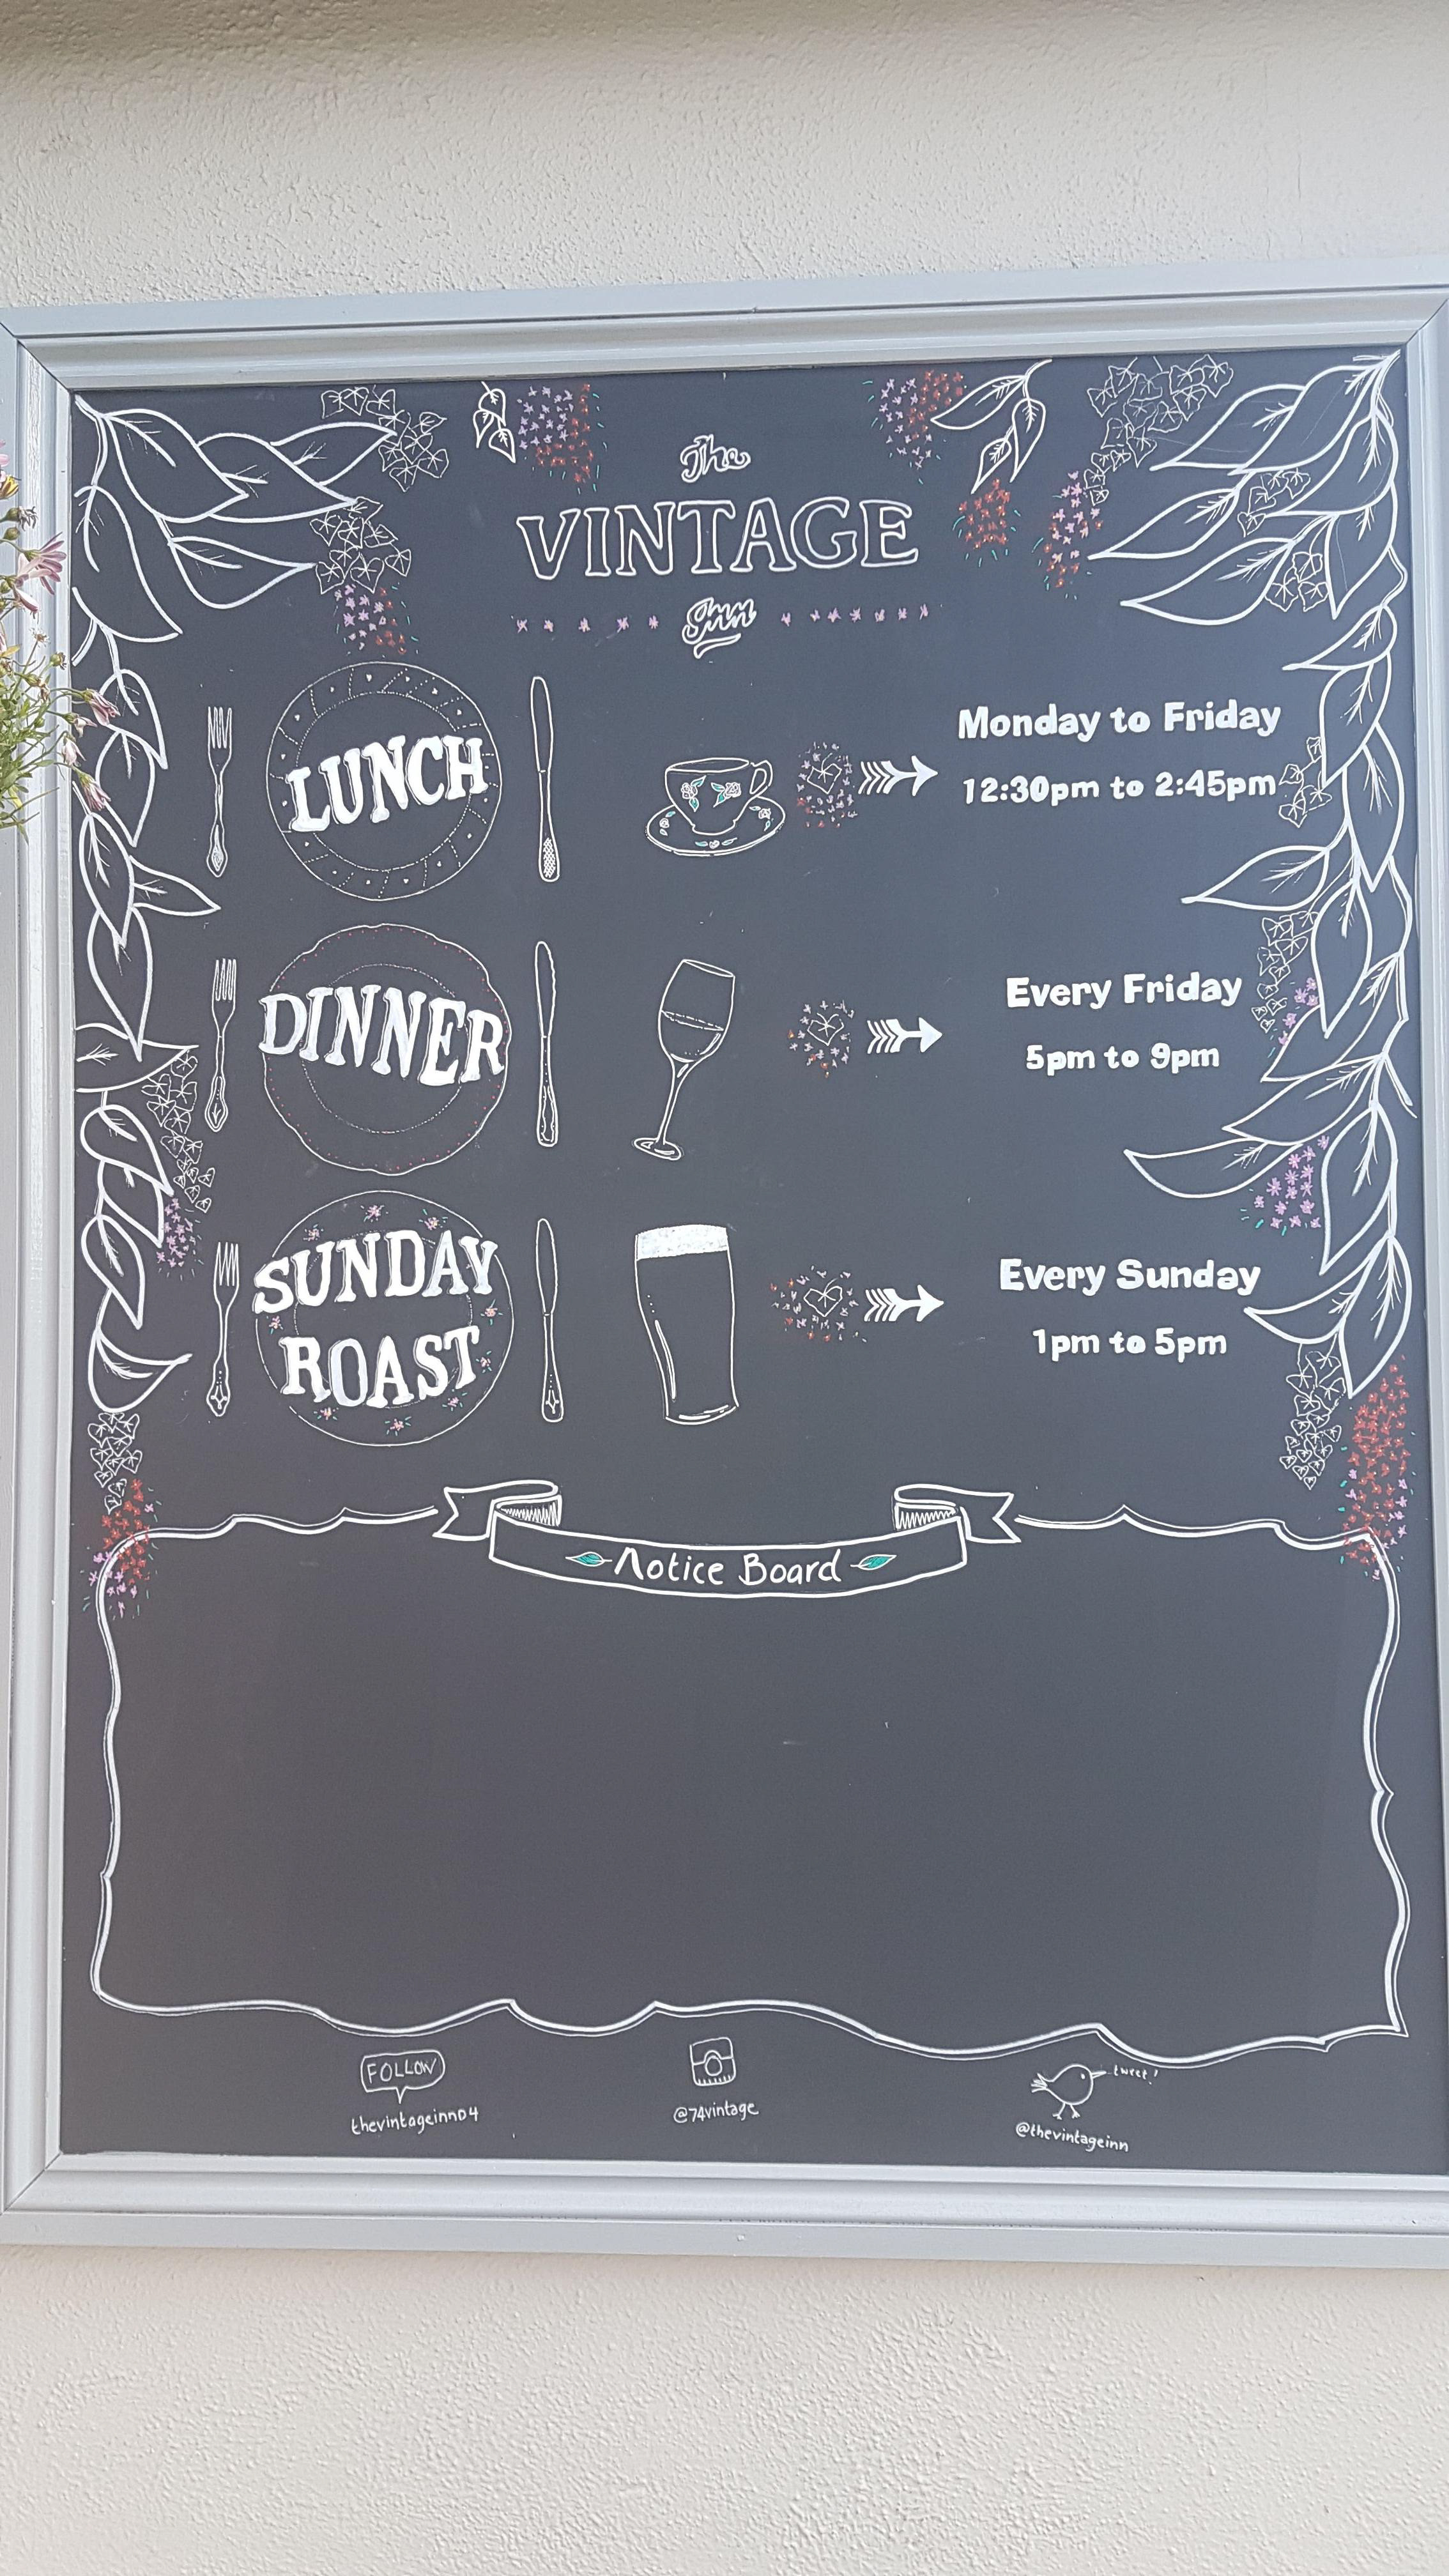 The
VINTAGE
Inn
LUNCH
Monday to Friday
12:30pm to 2:45pm
DINNER
Every Friday
5pm to 9pm
SUNDAY
ROAST
Every Sunday
1pm to 5pm
Notice Board
FOLLOW
thevintageinn04
@74vintage
tweet!
@thevintageinn